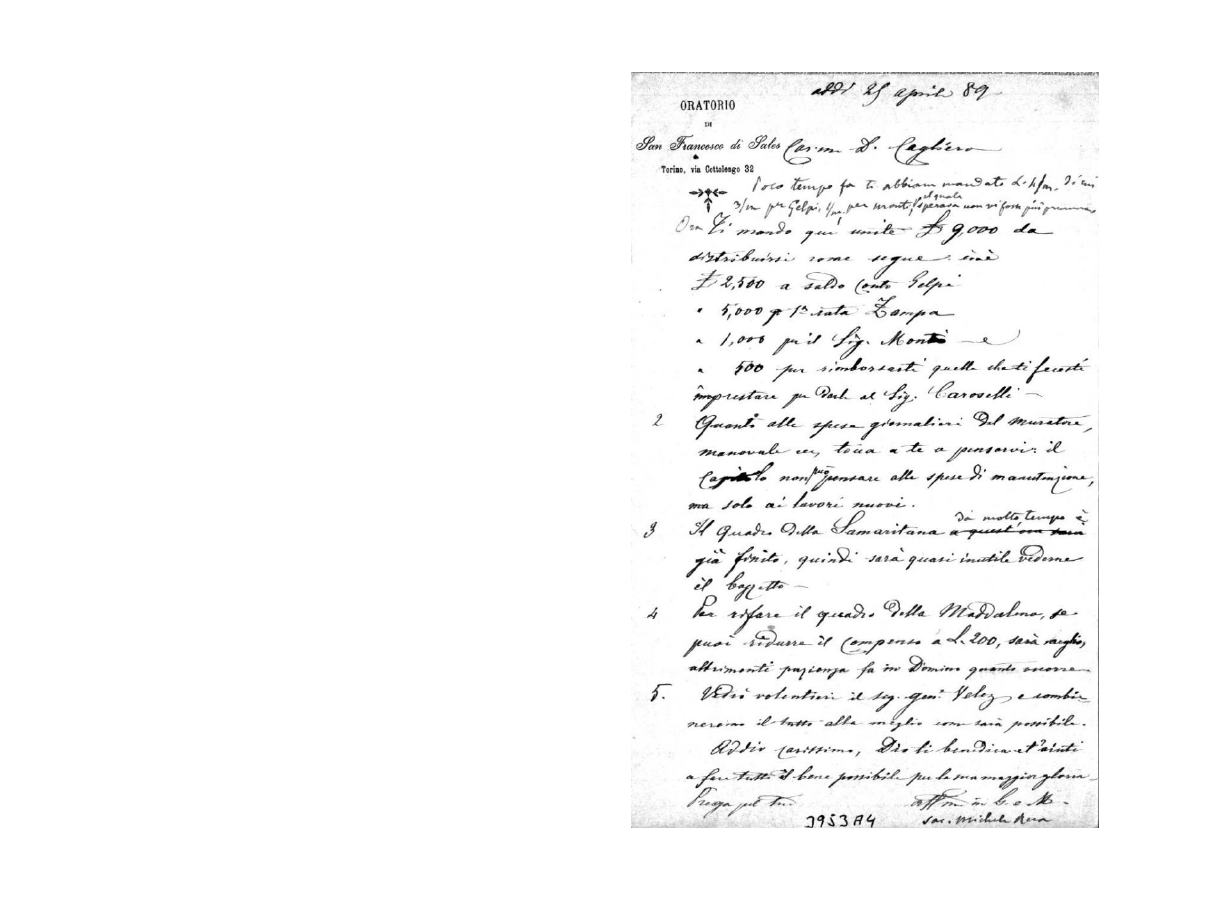 addì 25 aprile 89
ORATORIO
DI
San Francesco di Sales
Torino, via Cottolengo 32
Car.mo D. Cagliero
Poco tempo fa ti abbiam mandato L. 4/m. di cui
3/m per Gelpi, 1/m. per Monti, il quale sperava non vi fosse più
Ora Ti mando qui unite £ 9,000 da
distribuirsi come segue: cioè
£ 2,500 a saldo conto Gelpi
" 5,000 p 1ª rata Zampa
" 1,000 pel Sig. Monti — e
" 500 per rimborsarti quelle che ti facesti
imprestare per darle al Sig. Caroselli —
2 Quanto alle spese giornalieri del muratore,
manovale ecc, tocca a te a pensarvi: il
Capitolo non può pensare alle spese di manutenzione,
ma solo ai lavori nuovi.
3 Il quadro della Samaritana a quest'ora sarà da molto tempo è
già finito, quindi sarà quasi inutile vederne
il bozzetto —
4 Per rifare il quadro della Maddalena, se
puoi ridurre il compenso a L. 200, sarà meglio,
altrimenti pazienza fa in Domino quanto occorre
5. Vedrò volentieri il sig. gen. Velez e combi-
neremo il tutto alla meglio come sarà possibile.
Addio carissimo, Dio ti benedica e t'aiuti
a fare tutto il bene possibile per la sua maggior gloria
Prega pel tuo
aff.mo in G. e M.
Sac. Michele Rua
3953A4